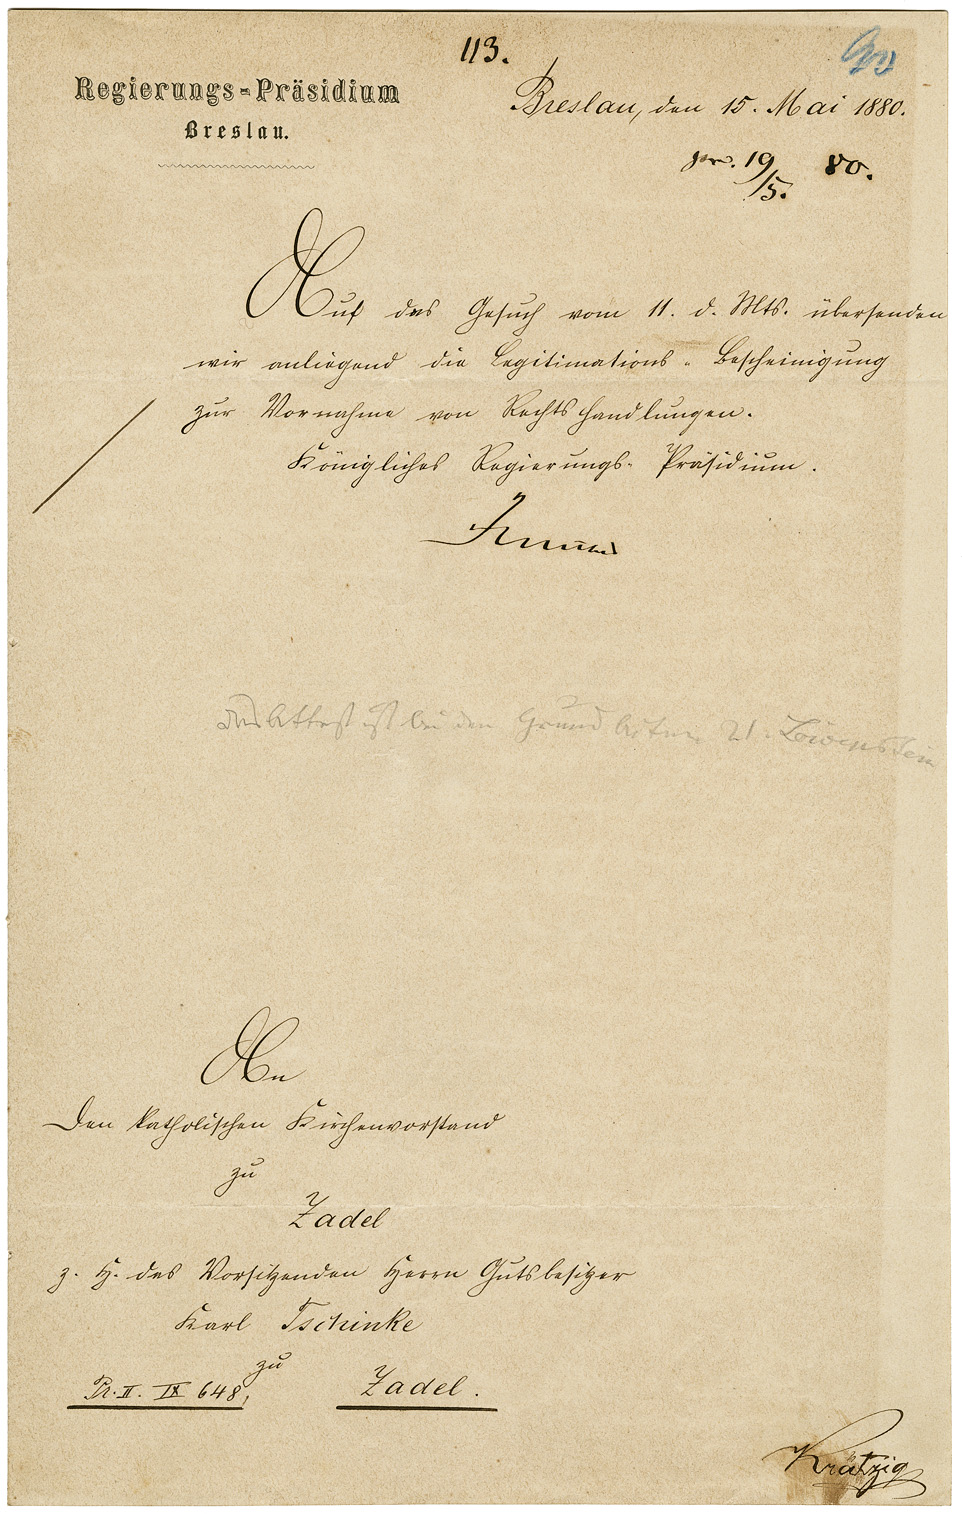 113.
Regierungs-Präsidium
Breslau.
Breslau, den 15. Mai 1880.
pr. 19/5. 80.
Auf das Gesuch vom 11. d. Mts. übersenden
wir anliegend die Legitimations-Bescheinigung
zur Vornahme von Rechtshandlungen.
Königliches Regierungs-Präsidium.
das Attest ist bei den Grund Akten 21. Löwenstein
An
Den katholischen Kirchenvorstand
zu
Zadel
z. H. des Vorsitzenden Herrn Gutsbesitzer
Karl Tschinke
zu
Pr. II. IX 648,
Zadel.
Krätzig